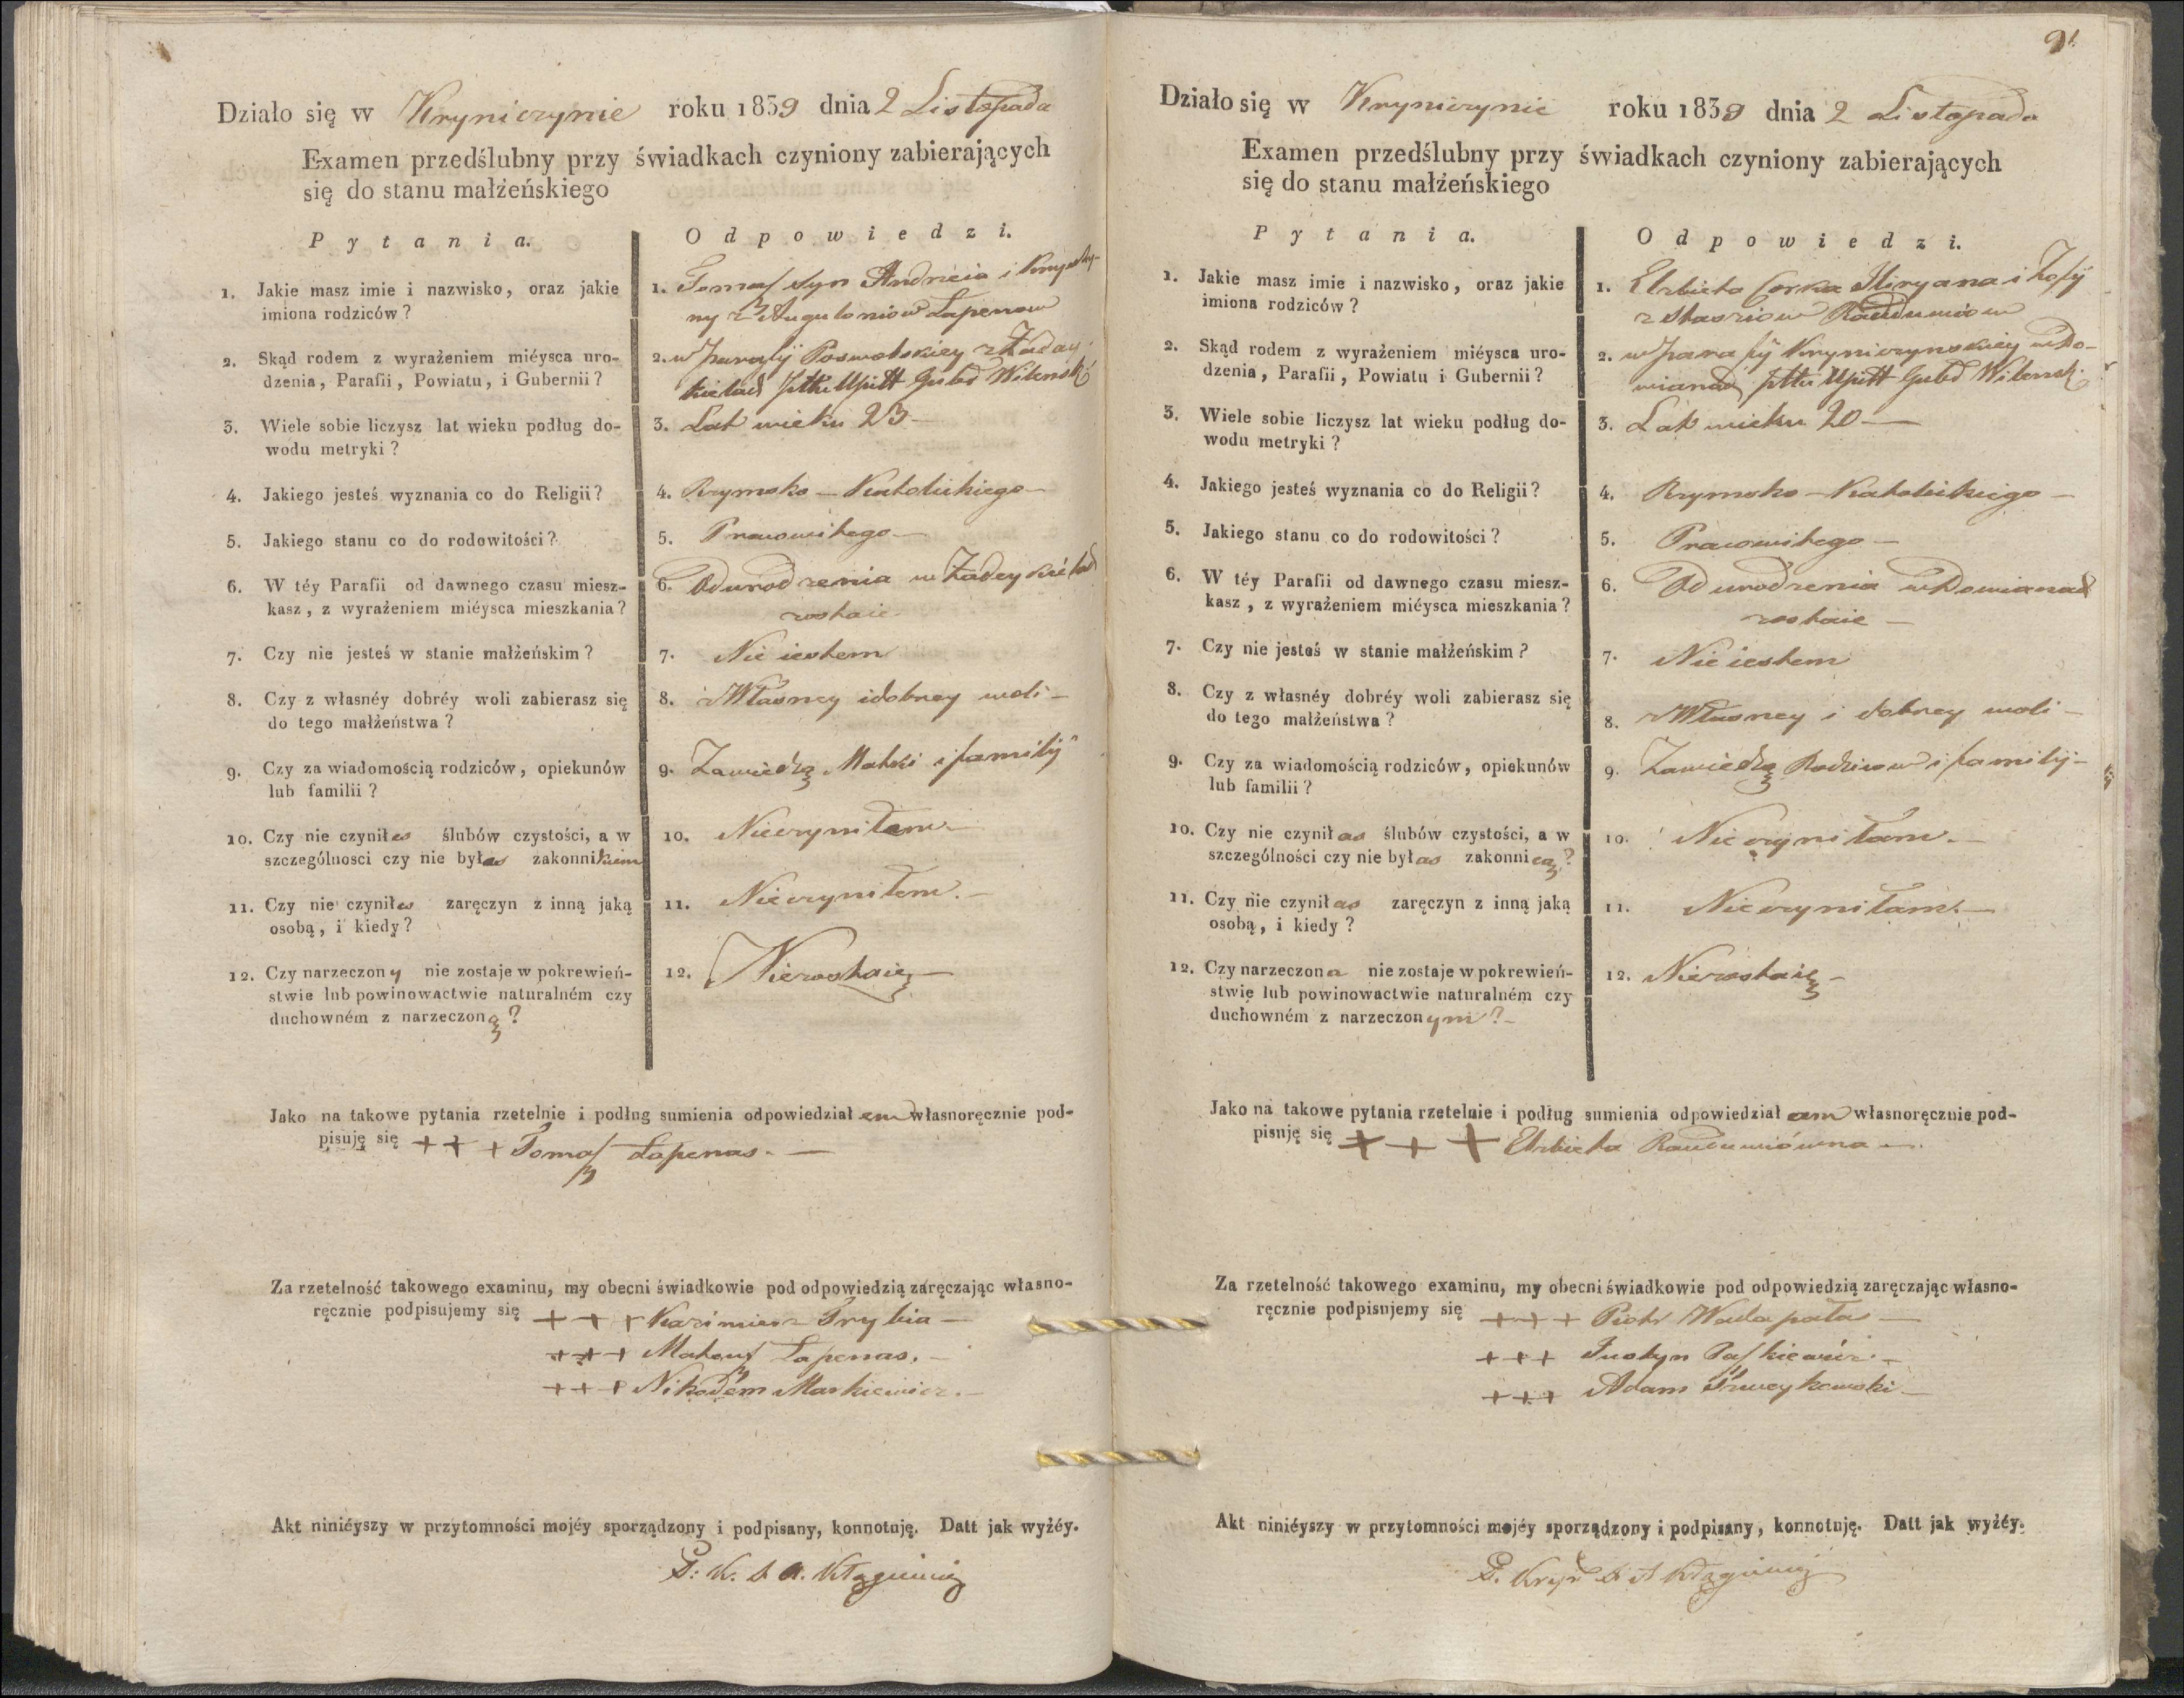 Działo się w Kryniczynie roku 1839 dnia 2 Listopada
Examen przedślubny przy świadkach czyniony zabierających
się do stanu małżeńskiego
P y t a n i a.
O d p o w i e d z i.
1. Jakie masz imie i nazwisko, oraz jakie
imiona rodziców?
1. Tomasz syn Andrzeia i Krysty-
ny z Lapenow
2. Skąd rodem z wyrażeniem miéysca uro-
dzenia, Parafii, Powiatu, i Gubernii?
2. w Parafij z
Pttu Upitt Gubd Wilensk:
3. Wiele sobie liczysz lat wieku podług do-
wodu metryki?
3. Lat wieku 23 —
4. Jakiego jesteś wyznania co do Religii?
4. Rzymsko — Katolickiego —
5. Jakiego stanu co do rodowitości?
5. Prawowitego —
6. W téy Parafii od dawnego czasu miesz-
kasz, z wyrażeniem miéysca mieszkania?
6. Od urodzenia w
zostaie
7. Czy nie jesteś w stanie małżeńskim?
7. Nie iestem
8. Czy z własnéy dobréy woli zabierasz się
do tego małżeństwa?
8. z Własney i dobrey woli —
9. Czy za wiadomością rodziców, opiekunów
lub familii?
9. Zawiedzą Matki i familij
10. Czy nie czyniłes ślubów czystości, a w
szczególnosci czy nie byłes zakonnikiem
10. Nieczyniłem —
11. Czy nie czyniłes zaręczyn z inną jaką
osobą, i kiedy?
11. Nieczyniłem. —
12. Czy narzeczony nie zostaje w pokrewień-
stwie lnb powinowactwie naturalném czy
duchowném z narzeczoną?
12. Niezostaię —
Jako na takowe pytania rzetelnie i podług sumienia odpowiedziałem własnoręcznie pod-
pisuję się + + + Tomasz Lapenas. —
Za rzetelność takowego examinu, my obecni świadkowie pod odpowiedzią zaręczając własno-
ręcznie podpisujemy się + + + Kazimierz Trybia —
+ + + Mateusz Lapenas. —
+ + + Nikodem Markiewicz. —
Akt niniéyszy w przytomności mojéy sporządzony i podpisany, konnotuję. Datt jak wyżéy.
P: K. A.
91
Działo się w Kryniczynie roku 1839 dnia 2 Listopada
Examen przedślubny przy świadkach czyniony zabierających
się do stanu małżeńskiego
P y t a n i a.
O d p o w i e d z i.
1. Jakie masz imie i nazwisko, oraz jakie
imiona rodziców?
1. Elzbieta Corka i Zofij
z Raudumiow
2. Skąd rodem z wyrażeniem miéysca uro-
dzenia, Parafii, Powiatu i Gubernii?
2. w parafij Kryniczynskiey w Do-
wianach pttu Upitt Gubd Wilensk:
3. Wiele sobie liczysz lat wieku podług do-
wodu metryki?
3. Lat wieku 20 —
4. Jakiego jesteś wyznania co do Religii?
4. Rzymsko — Katolickiego —
5. Jakiego stanu co do rodowitości?
5. Prawowitego —
6. W téy Parafii od dawnego czasu miesz-
kasz, z wyrażeniem miéysca mieszkania?
6. Od urodzenia w Dowianach
zostaie —
7. Czy nie jesteś w stanie małżeńskim?
7. Nie iestem
8. Czy z własnéy dobréy woli zabierasz się
do tego małżeństwa?
8. z Własney i dobrey woli —
9. Czy za wiadomością rodziców, opiekunów
lub familii?
9. Zawiedzą Rodzicow i familij —
10. Czy nie czyniłas ślubów czystości, a w
szczególności czy nie byłas zakonnicą?
10. Nieczyniłam. —
11. Czy nie czyniłas zaręczyn z inną jaką
osobą, i kiedy?
11. Nieczyniłam. —
12. Czy narzeczona nie zostaje w pokrewień-
stwie lub powinowactwie naturalném czy
duchowném z narzeczonym? —
12. Niezostaię —
Jako na takowe pytania rzetelnie i podług sumienia odpowiedziałam własnoręcznie pod-
pisuję się + + + Elzbieta Raudumiówna —.
Za rzetelność takowego examinu, my obecni świadkowie pod odpowiedzią zaręczając własno-
ręcznie podpisujemy się + + + Piotr Wadapałas —
+ + + Justyn Paszkiewicz. —
+ + + Adam Szweykowski —
Akt niniéyszy w przytomności mojéy sporządzony i podpisany, konnotuję. Datt jak wyżéy.
P.